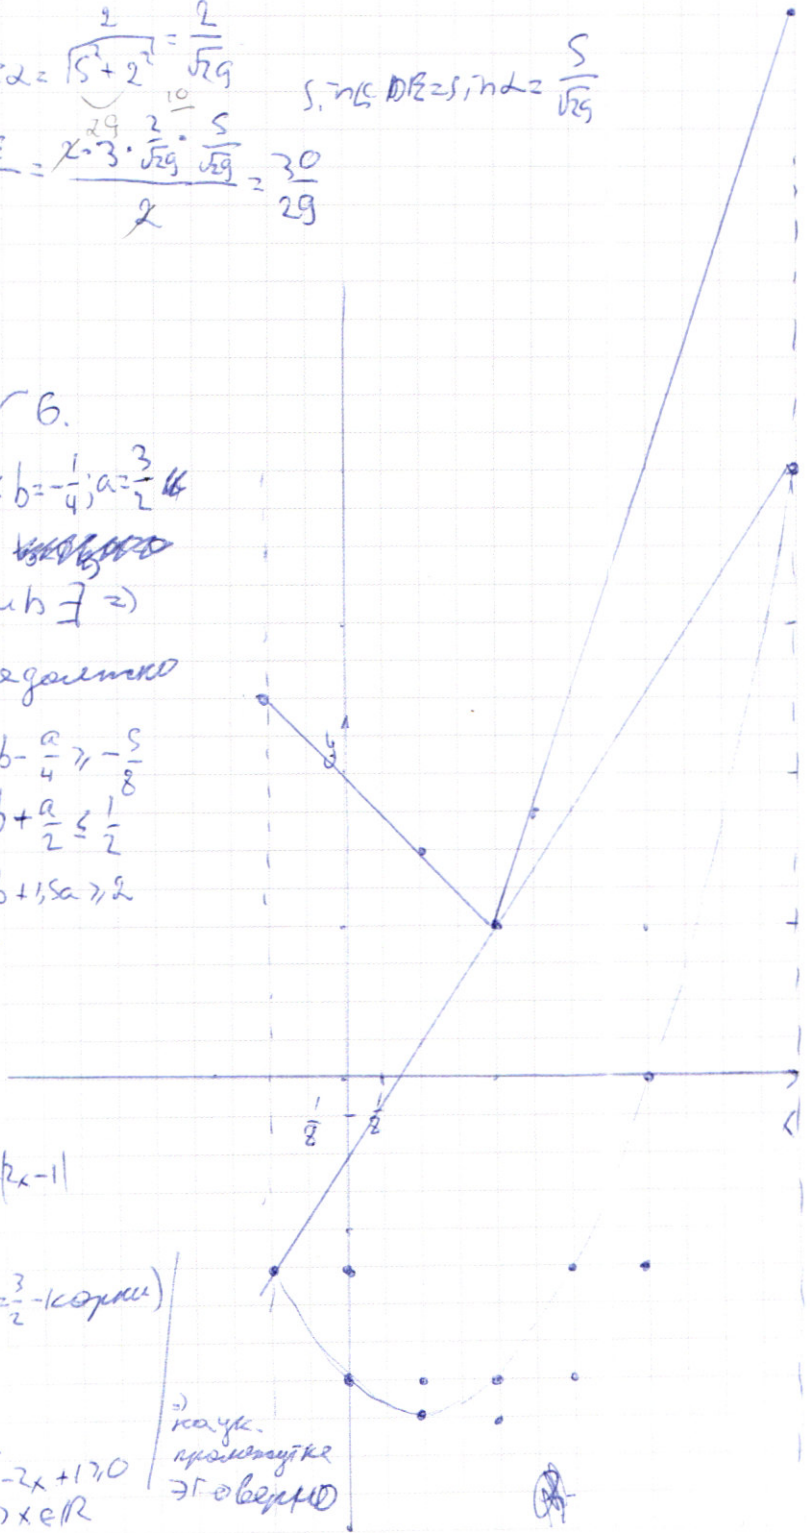 α = 2/√(5² + 2²) = 2/√29
29
10
sin∠DE = sin α = 5/√29
= (2·3·2/√29·5/√29)/2 = 30/29
6.
b = -1/4; a = 3/2 и
и b ∃ ⇒
должно
b - a/4 ≥ -5/8
b + a/2 ≤ 1/2
b + 1,5a ≥ 2
1/8
1/8
|2x-1|
= 3/2 - корни)
⇒
на ук.
промежутке
это верно
-2x + 1 ≥ 0
x ∈ ℝ